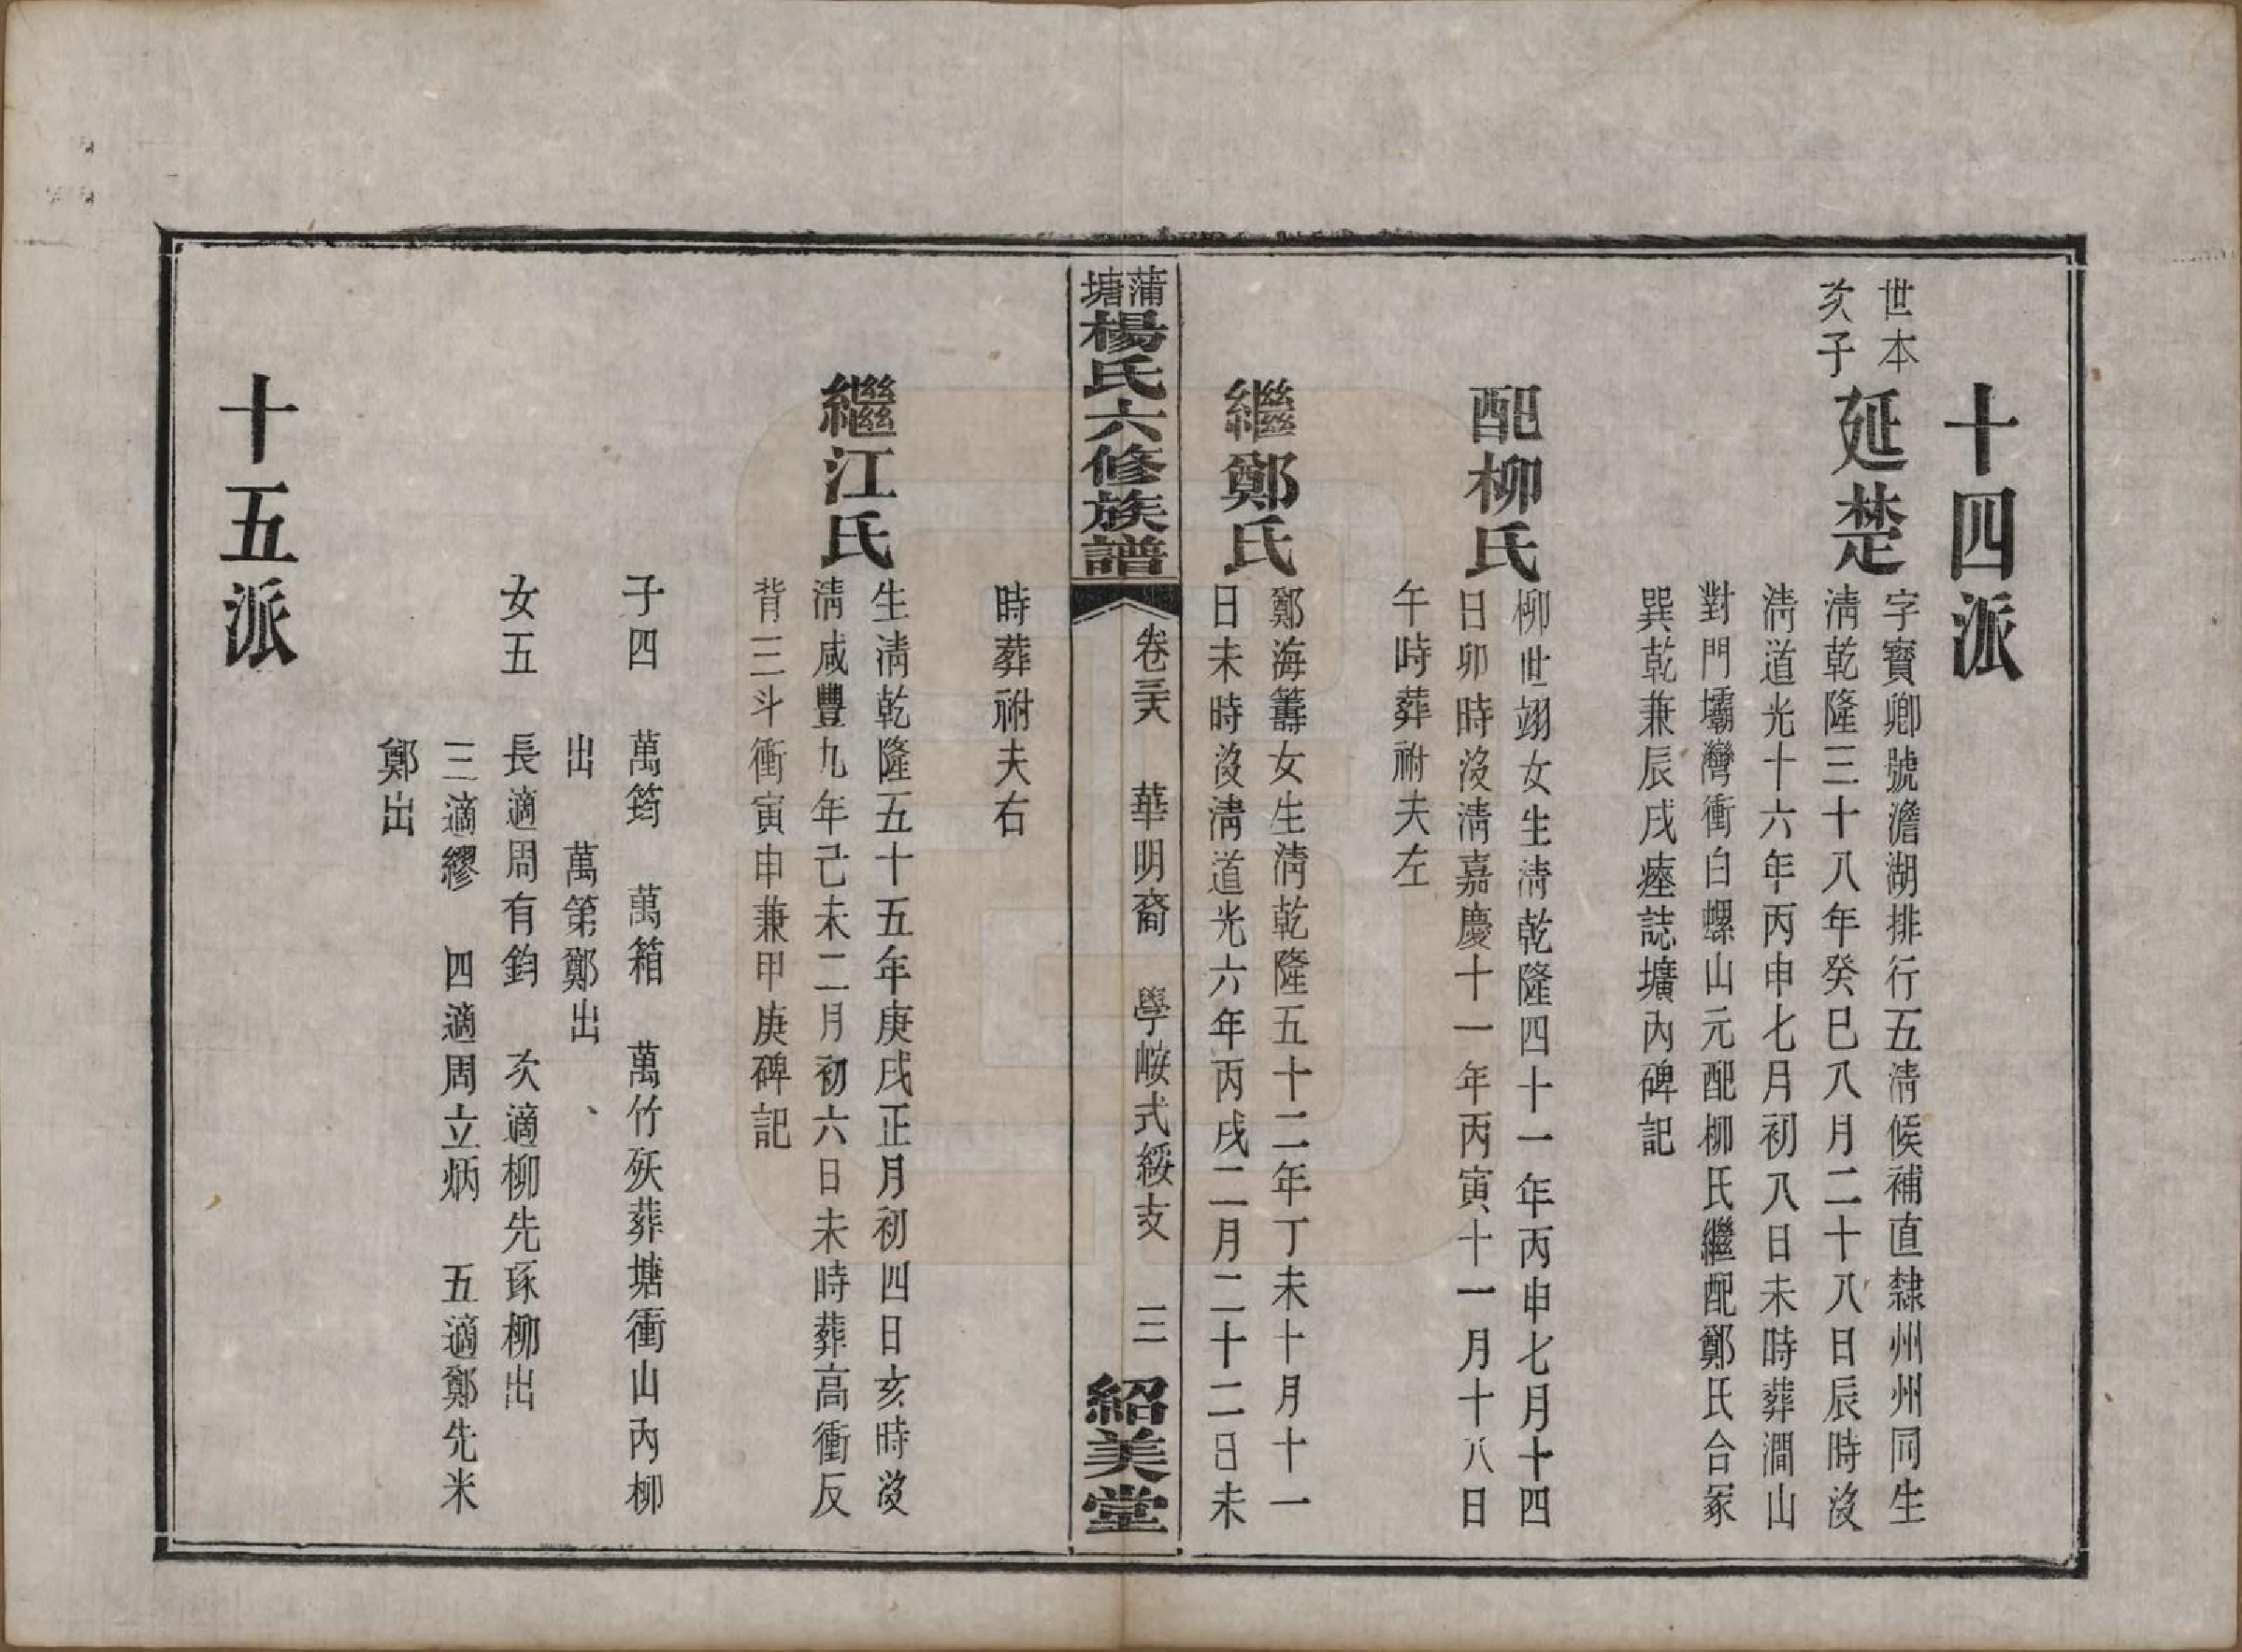 十四派
世本
次子
延楚
字寶卿號澹湖排行五淸候補直隸州州同生
淸乾隆三十八年癸巳八月二十八日辰時沒
淸道光十六年丙申七月初八日未時葬澗山
對門壩灣衝白螺山元配柳氏繼配鄭氏合冢
巽乾兼辰戌瘞誌壙內碑記
配柳氏
柳世翊女生淸乾隆四十一年丙申七月十四
日卯時沒淸嘉慶十一年丙寅十一月十八日
午時葬祔夫左
繼鄭氏
鄭海籌女生淸乾隆五十二年丁未十月十一
日未時沒淸道光六年丙戌二月二十二日未
蒲塘楊氏六修族譜
卷三十六 華明裔 學峖式綏支 三
紹美堂
時葬祔夫右
繼江氏
生淸乾隆五十五年庚戌正月初四日亥時沒
淸咸豐九年己未二月初六日未時葬高衝反
背三斗衝寅申兼甲庚碑記
子四 萬筠 萬箱 萬竹殀葬塘衝山內柳
出 萬第鄭出
女五 長適周有鈞 次適柳先琢柳出
三適繆 四適周立炳 五適鄭先米
鄭出
十五派